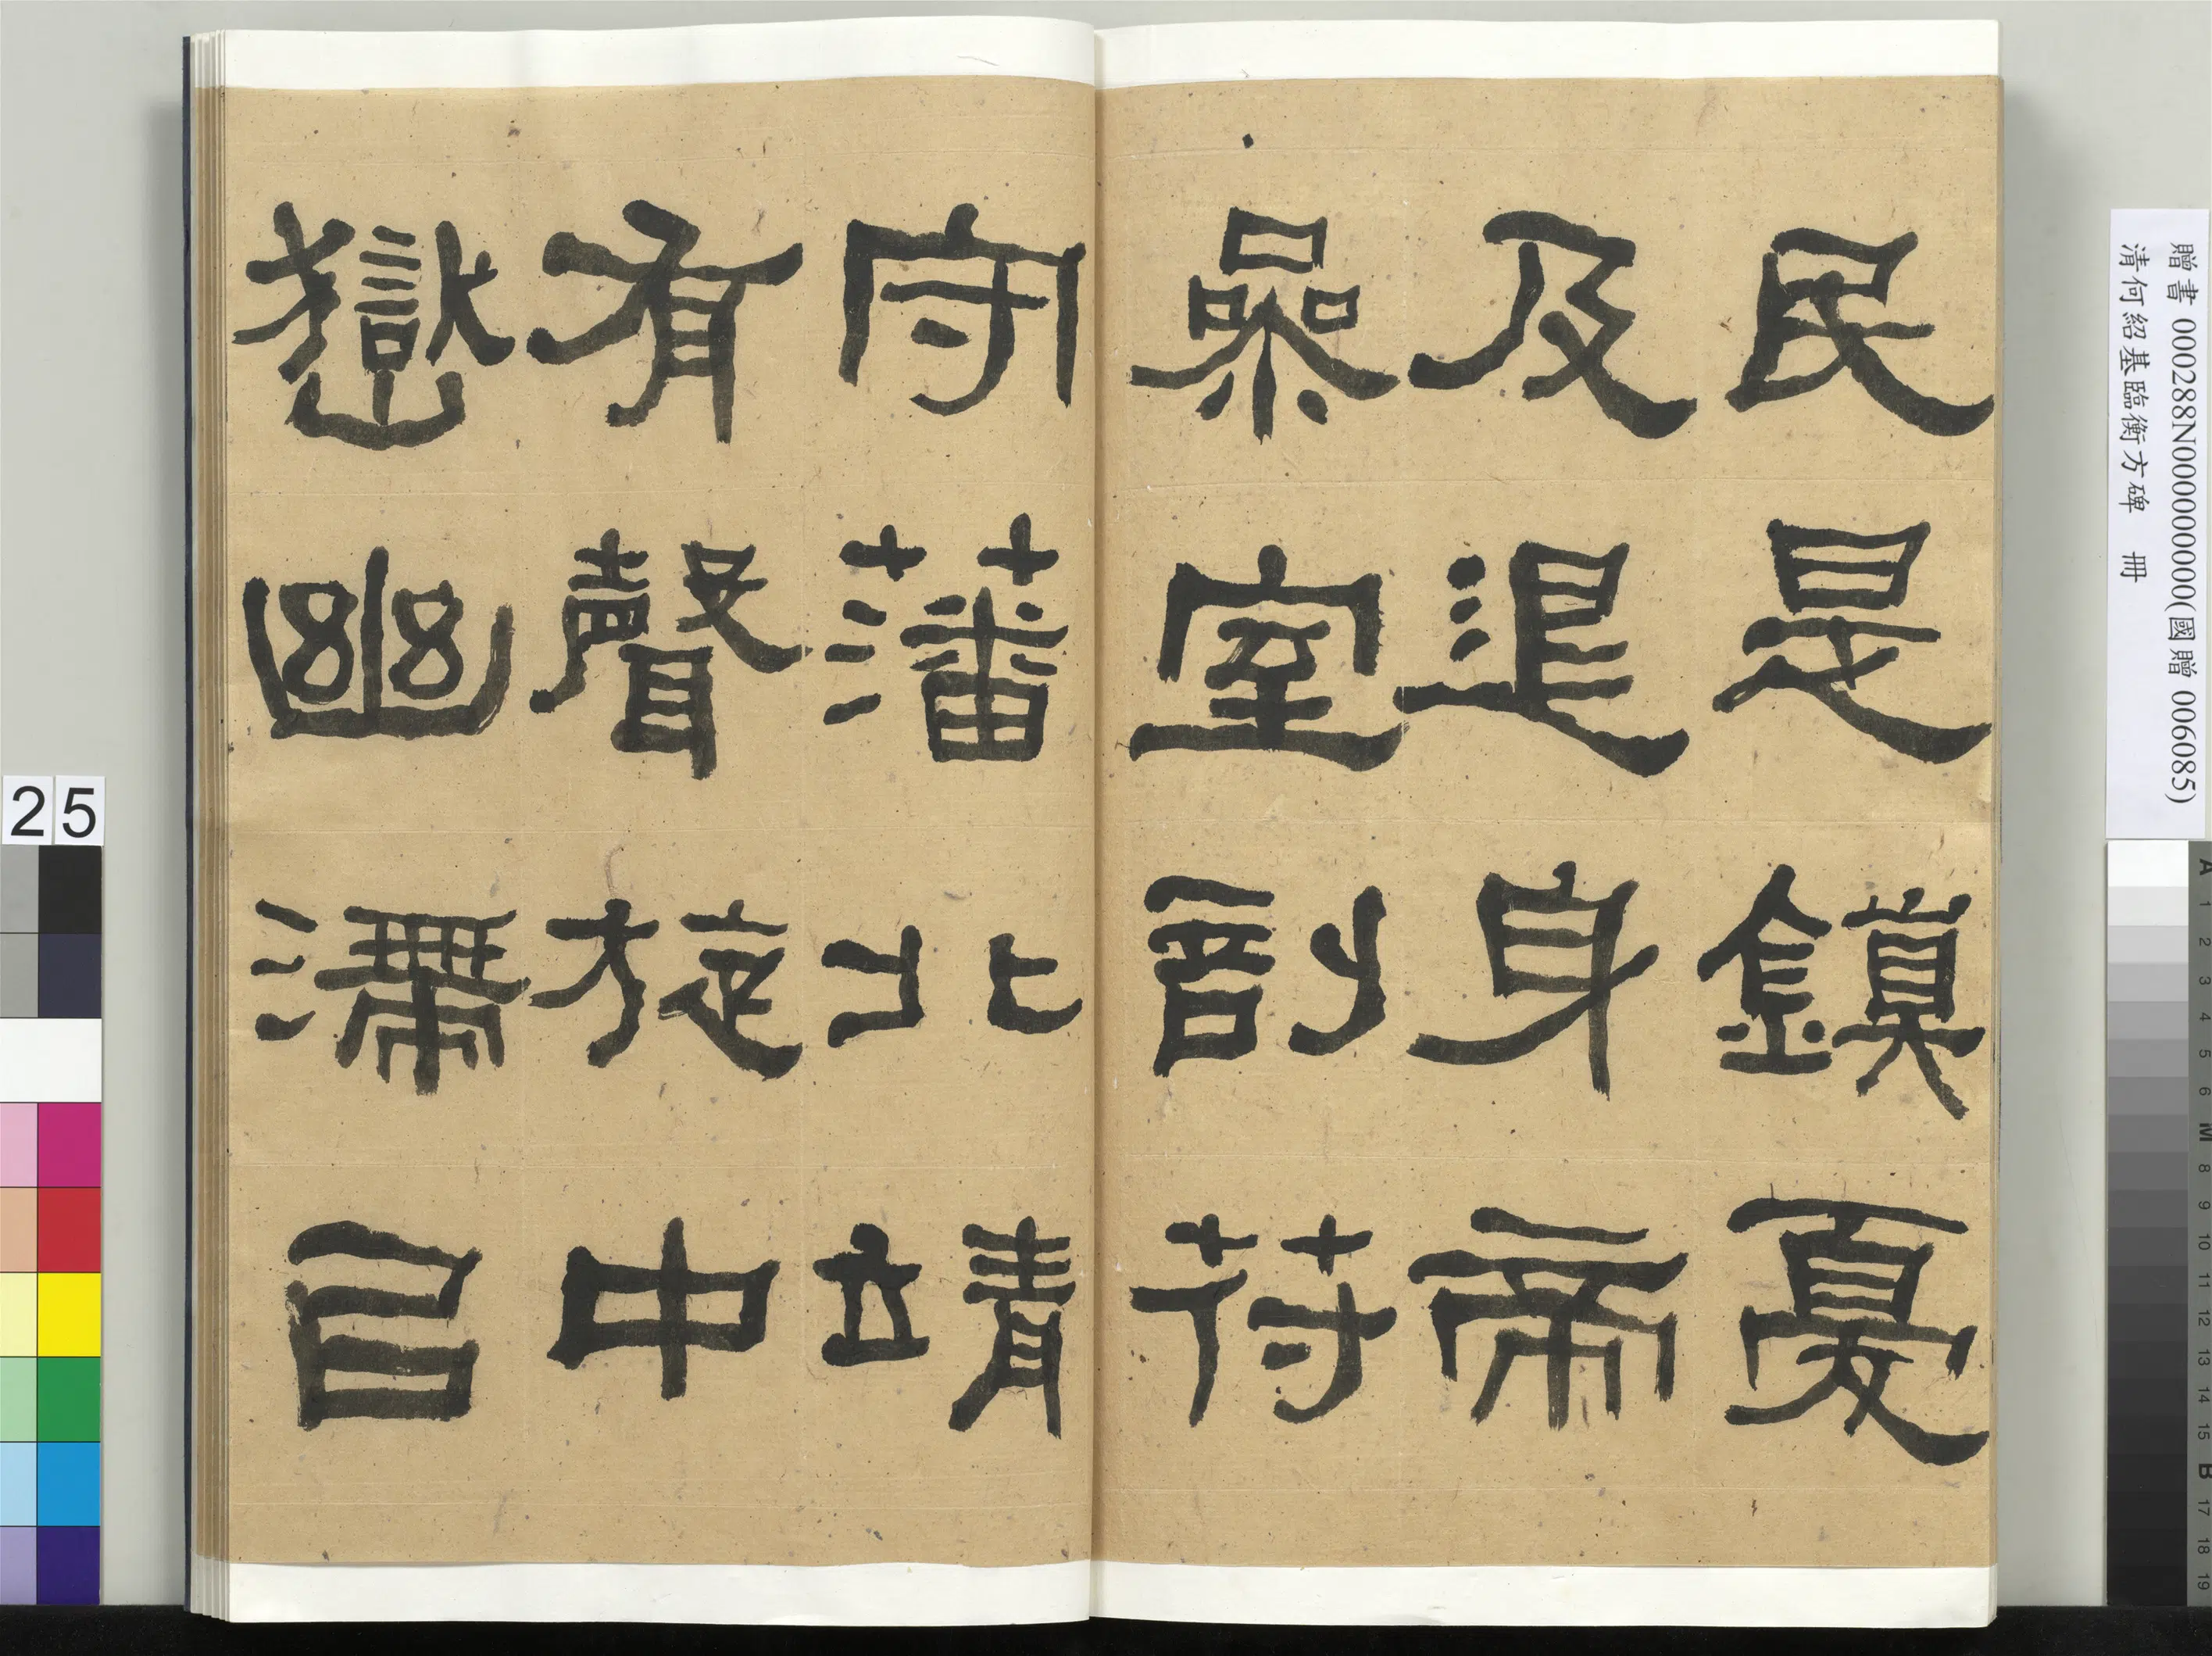 民是鎮憂
及退身帝
喿室剖符
守藩北靖
有聲旋中
嶽幽滯以
贈書 000288N000000000(國贈 006085)
清何紹基臨衡方碑 冊
25
A 1 2 3 4 5 6 M 8 9 10 11 12 13 14 15 B 17 18 19